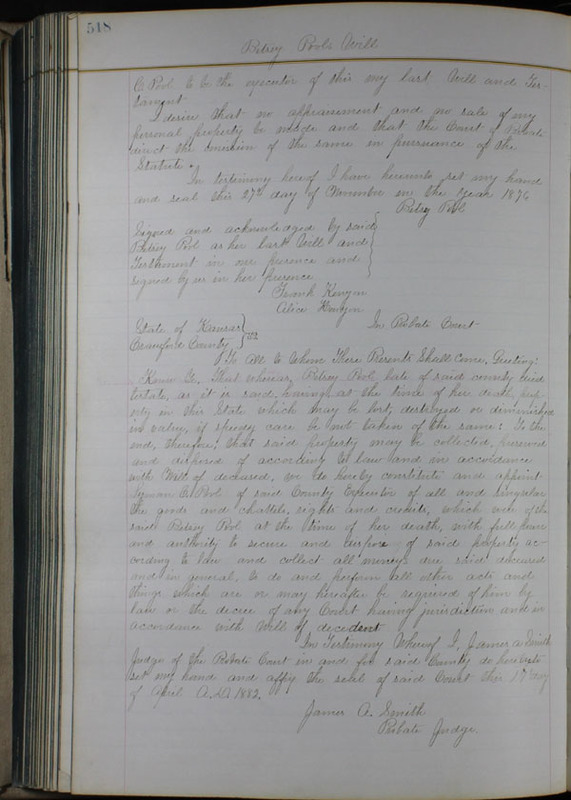 518
Betsey Pool's Will
C Pool to be the executor of this my last Will and Tes-
tament
I desire that no appraisement and no sale of my
personal property be made and that the Court of Probate
direct the omission of the same in pursuance of the
Statute.
In testimony hereof I have hereunto set my hand
and seal this 27th day of November in the year 1876
Betsy Pool
Signed and acknowledged by said
Betsey Pool as her last Will and
Testament in our presence and
signed by us in her presence
Frank Kenyon
Alice Kenyon
State of Kansas
Crawford County } ss
In Probate Court
To All to Whom These Presents Shall Come, Greeting:
Know Ye, That whereas, Betsey Pool late of said county died
testate, as it is said, having at the time of her death, prop-
erty in this State which may be lost, destroyed or diminished
in value, if speedy care be not taken of the same: To the
end, therefore, that said property may be collected, preserved
and disposed of according to law and in accordance
with Will of deceased, we do hereby constitute and appoint
Pool of said County Executor of all and singular
the goods and chattels, rights and credits, which were of the
said Betsey Pool at the time of her death, with full power
and authority to secure and dispose of said property ac-
cording to law and collect all moneys due said deceased
and in general, to do and perform all other acts and
things which are or may hereafter be required of him by
law or the decree of any Court having jurisdiction and in
accordance with Will of decedent
In Testimony Whereof I, James A Smith
Judge of the Probate Court in and for said County do hereunto
set my hand and affix the seal of said Court this day
of April A.D. 1882.
James A. Smith
Probate Judge.